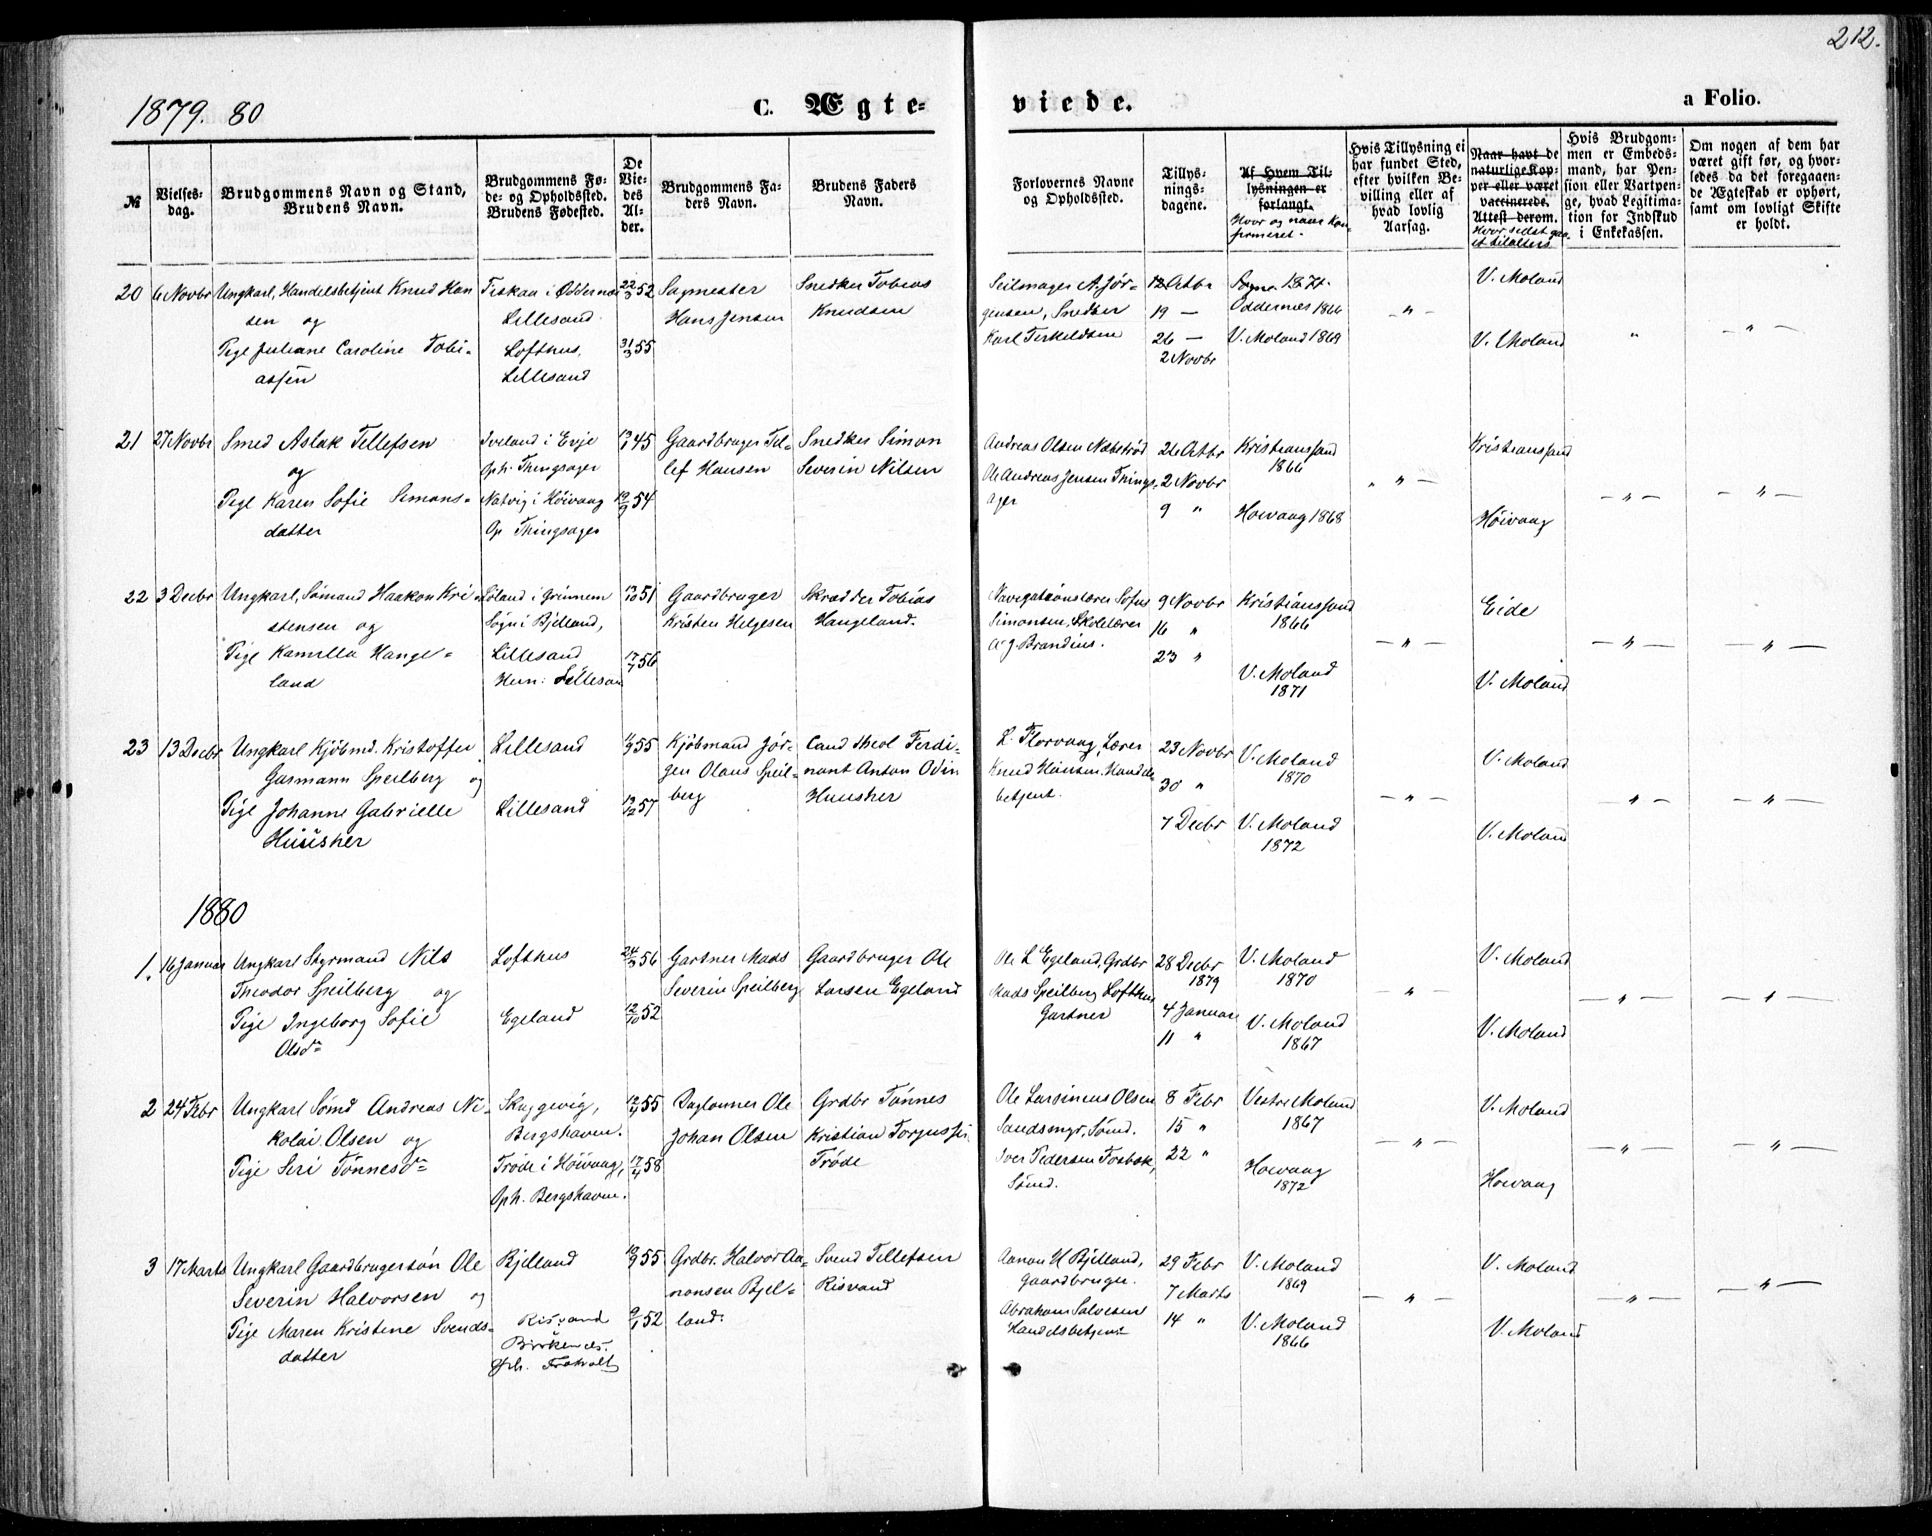 212.
1879. 80
C. Ægte-
viede.
a Folio.
№
Vielses-
dag.
Brudgommens Navn og Stand,
Brudens Navn.
Brudgommens Fø-
de- og Opholdssted.
Brudens Fødested.
De
Vie-
des
Al-
der.
Brudgommens Fa-
ders Navn.
Brudens Faders
Navn.
Forlovernes Navne
og Opholdssted.
Tillys-
nings-
dagene.
Af Hvem Til-
lysningen er
forlangt.
Hvor og naar kon-
firmeret.
Hvis Tillysning ei
har fundet Sted,
efter hvilken Be-
villing eller af
hvad lovlig
Aarsag.
Naar havt de
naturlige Kop-
per eller været
vaccinerede.
Attest derom.
Hvor sidst gaa-
et til alters
Hvis Brudgom-
men er Embeds-
mand, har Pen-
sion eller Vartpen-
ge, hvad Legitima-
tion for Indskud
i Enkekassen.
Om nogen af dem har
været gift før, og hvor-
ledes da det foregaaen-
de Ægteskab er ophørt,
samt om lovligt Skifte
er holdt.
20
6 Novbr
Ungkarl, Handelsbetjent Knud Han
sen og
Pige Juliane Caroline Tobi-
assen
Tiskaa i Oddernæs
Lillesand
Lofthus,
Lillesand
22/3 52
31/3 55
Sagmester
Hans Jensen
Snedker Tobias
Knudsen
Seilmager A. Jør-
gensen, Snedker
Karl Terkeldsen
12 Octbr
19 —
26 —
2 Novbr
Oddernes 1866
V. Moland 1869
— " —
V. Moland
V. Moland
"
— " —
21
27 Novbr
Smed Aslak Tellefsen
og
Pige Karen Sofie Simons-
datter
Iveland i Evje
Oph. Thingsager
Natvig i Höivaag
Op Thingsager
45
19/9 54
Gaardbruger Tel-
lef Hansen
Snedker Simon
Severin Nilsen
Andreas Olsen Næbstrød
Ole Andreas Jensen Things-
ager
26 Octbr
2 Novbr
9 "
Kristianssand
1866
Hoivaag 1868
" — " —
Kristianssand
Höivaag
— " —
— " —
22
3 Decbr
Ungkarl, Sömand Haakon Kri-
stensen og
Pige Kamilla Hange-
land
Soland i Grinnem
Sogn i Bjelland,
Lillesand
Hun: Lillesand
51
17/7 56
Gaardbruger
Kristen Helgesen
Skrædder Tobias
Hangeland.
Navigationslærer Sofus
Simonsen, Skolelærer
A. J. Brandius.
9 Novbr
16 "
23 "
Kristianssand
1866
V. Moland
1871
— " —
Eide
V. Moland
— " —
— " —
23
13 Decbr
Ungkarl Kjöbmd. Kristoffer
Gusmann Speilberg og
Pige Johanne Gabrielle
Huusher
Lillesand
Lillesand
55
19/12 57
Kjöbmand Jör-
gen Olaus Speil-
berg
Cand theol Ferdi-
nant Anton Odin
Huusher
L. Florvaag, Lærer
Knud Hansen, Handels-
betjent.
23 Novbr
30 "
7 Decbr
V. Moland
1870
V. Moland
1872
— " —
V. Moland
V. Moland
— " —
— " —
1880
1.
16 Januar
Ungkarl Styrmand Nils
Theodor Speilberg og
Pige Ingeborg Sofie
Olsdr
Lofthus
Egeland
24/3 56
12/10 52
Gartner Mads
Severin Speilberg
Gaardbruger Ole
Larsen Egeland
Ole L Egeland, Grdbr
Mads Speilberg Lofthus
Gartner
28 Decbr
1879
4 Januar
11 "
V. Moland
1870
V. Moland
1867
— " —
V. Moland
V. Moland
— " —
— " —
2
24 Febr
Ungkarl Sömd Andreas Ni-
kolai Olsen og
Pige Seri Tönnesdr
Skaggevig,
Bergshaven.
Tröde i Höivaag,
Oph. Bergshavn.
55
17/4 58
Daglonner Ole
Johan Olsen
Grdbr Tönnes
Kristian Torgussen
Tröde
Ole Larsineus Olsen
Sandsmyr, Sömd.
Iver Pedersen Fosbæk,
Sömd.
8 Febr
15 "
22 "
Vestre Moland
1867
Hoivaag
1872
— " —
V. Moland
Hoivaag
— " —
— " —
3
17 Marts
Ungkarl Gaardbrugersön Ole
Severin Halvorsen og
Pige Maren Kristine Svends-
datter
Bjelland
Risvand
Birkenæs.
Oph. Frokvalt
55
9/1 52
Grdbr. Halvor Aa-
nonsen Bjel-
land.
Svend Tellefsen
Risvand
Aanon H Bjelland,
Gaardbruger.
Abraham Salvesen
Handelsbetjent
29 Febr
7 Marts
14 "
V. Moland
1869
V. Moland
1866
— " —
V. Moland
V. Moland
— " —
— " —